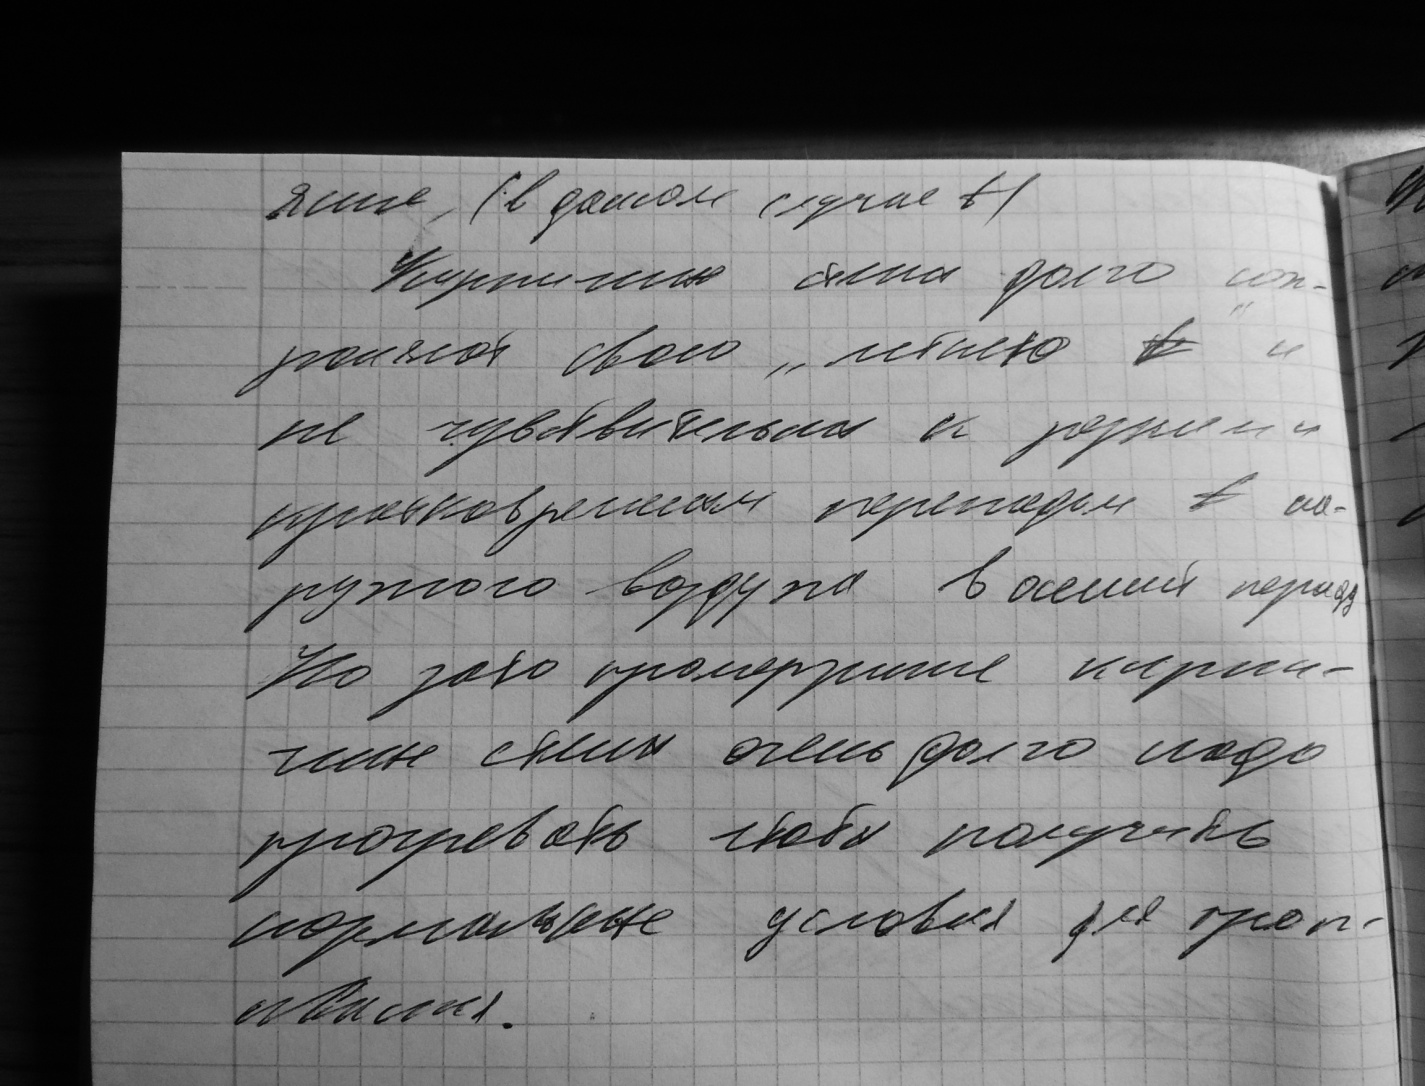 яние, (в данном случае t)
Кирпичная стена долго сох-
раняет свою „летнюю t" и
не чувствительна к резким
кратковременным перепадам t на-
ружного воздуха в осенний период
Но зато промерзшие кирпи-
чные стены очень долго надо
прогревать чтобы получить
нормальные условия для прож-
ивания.